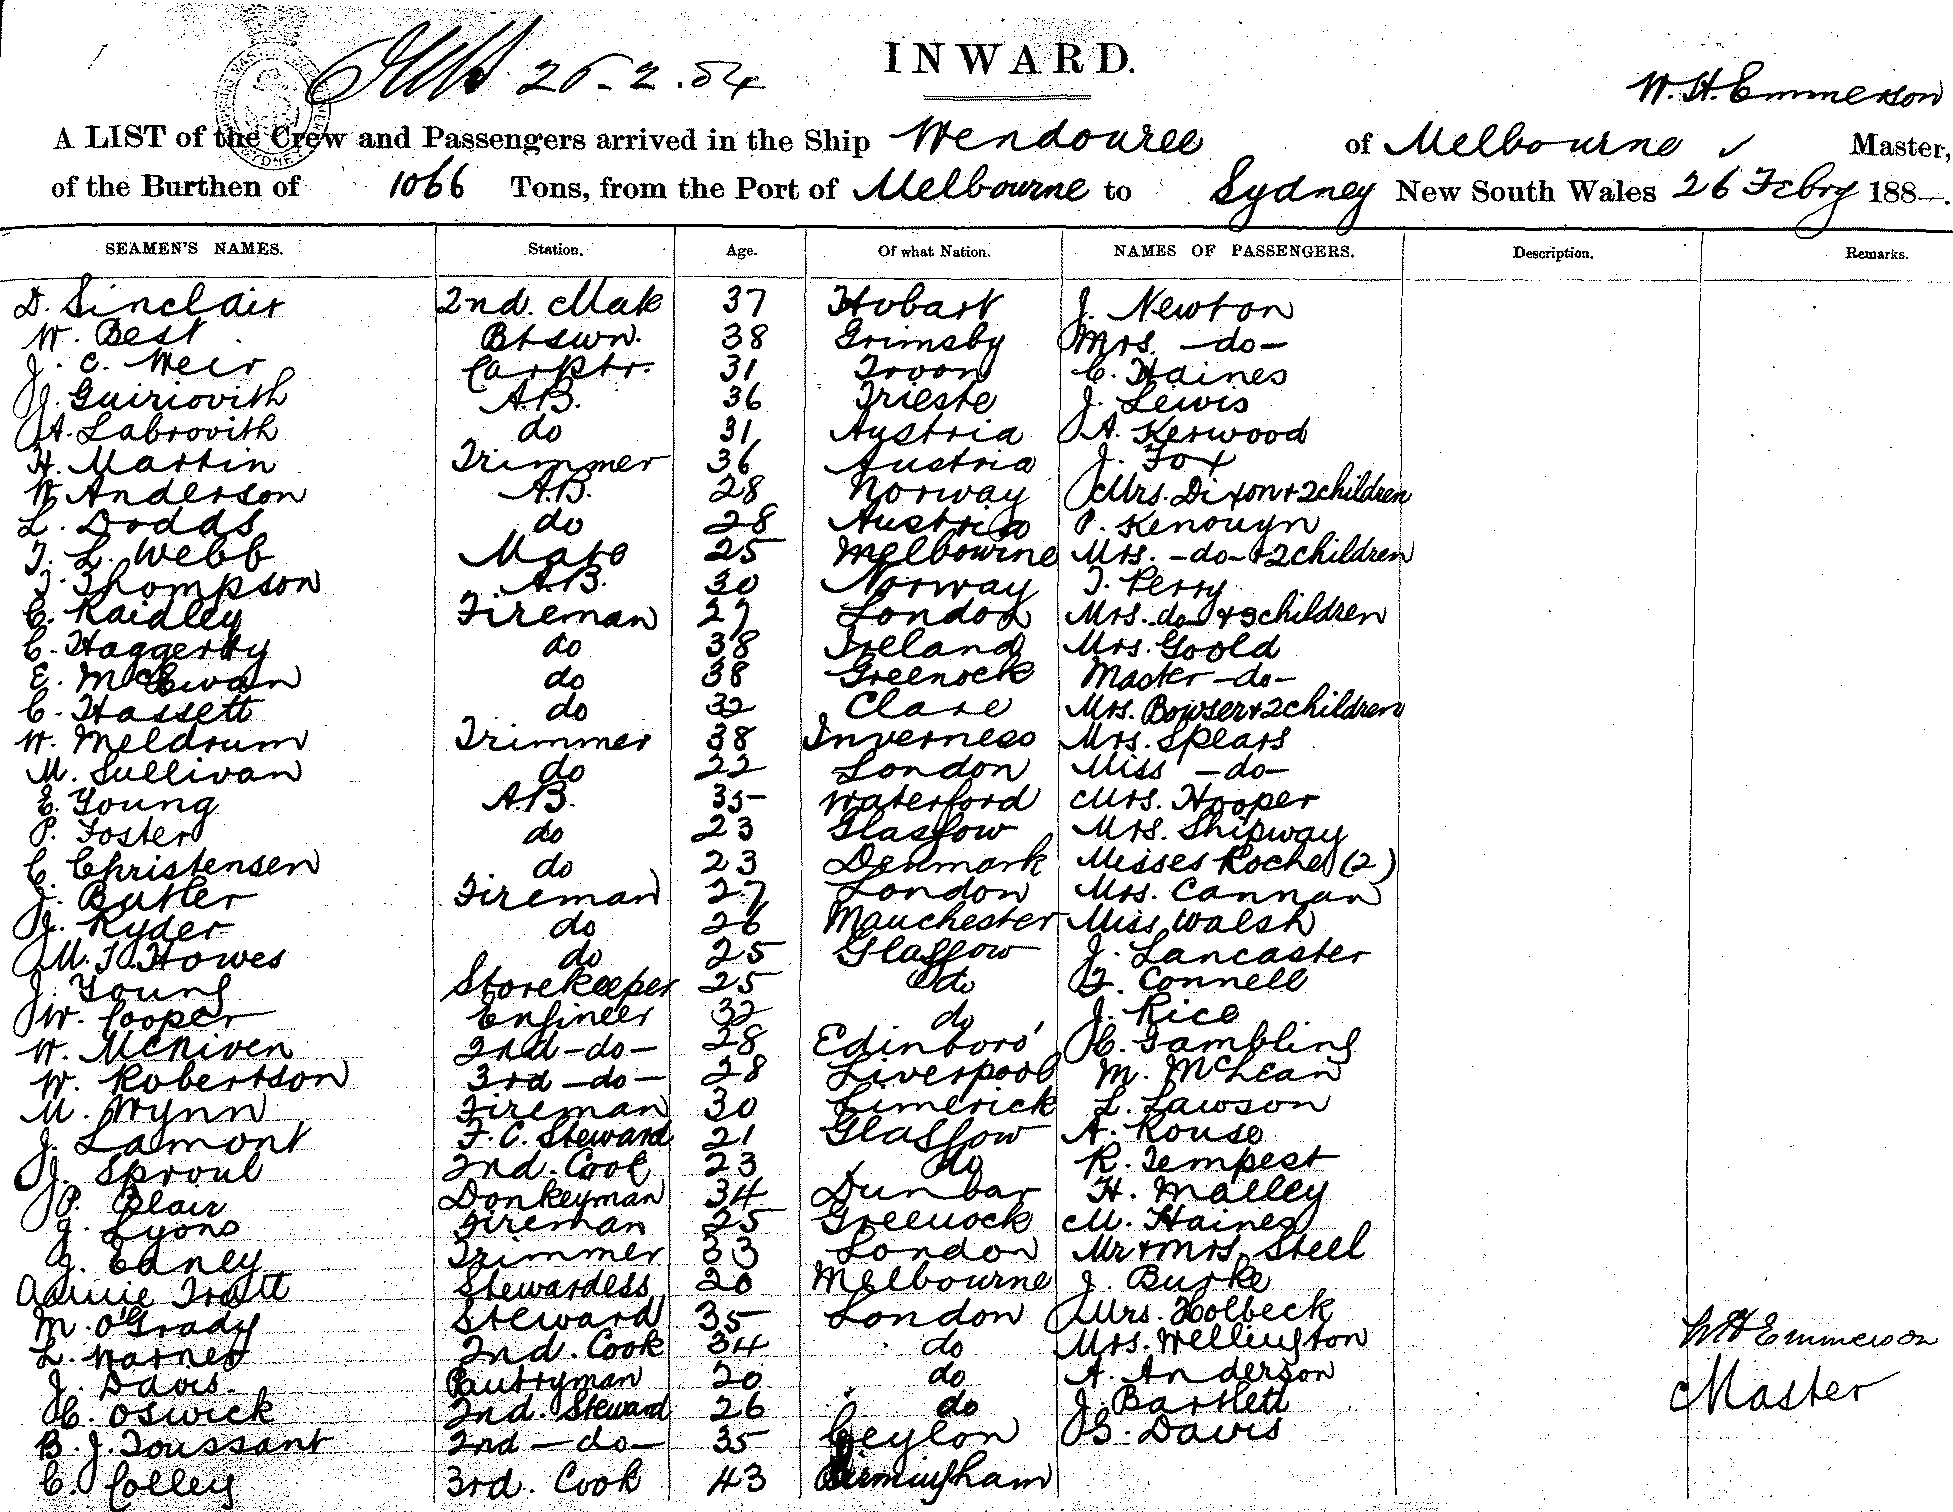 25.2.84
INWARD.
W. H. Emmerson
A LIST of the Crew and Passengers arrived in the Ship Wendouree of Melbourne ✓ Master,
of the Burthen of 1066 Tons, from the Port of Melbourne to Sydney New South Wales 26 Febry 188—.
SEAMEN'S NAMES. Station. Age. Of what Nation. NAMES OF PASSENGERS. Description. Remarks.
D. Sinclair 2nd. Mate 37 Hobart J. Newton
W. Best Btswn. 38 Grimsby Mrs. —do—
J. C. Weir Carptr. 31 Troon C. Haines
J. Guiriovith A.B. 36 Trieste J. Lewis
A. Labrovith do 31 Austria A. Kerwood
H. Martin Trimmer 36 Austria J. Fox
W. Anderson A.B. 28 Norway Mrs. Dixon + 2 children
L. Dodds do 28 Austria P. Kenouyn
T. L. Webb Mate 25 Melbourne Mrs. —do— + 2 children
T. Thompson A.B. 30 Norway T. Perry
C. Raidley Fireman 27 London Mrs. do + 3 children
C. Haggerty do 38 Ireland Mrs. Goold
E. McEwan do 38 Greenock Master —do—
C. Hassett do 32 Clare Mrs. Bowser + 2 children
W. Meldrum Trimmer 38 Inverness Mrs. Spears
M. Sullivan do 22 London Miss —do—
E. Young A.B. 35 Waterford Mrs. Hooper
P. Foster do 23 Glasgow Mrs. Shipway
C. Christensen do 23 Denmark Misses Roche (2)
J. Butler Fireman 27 London Mrs. Cannan
J. Ryder do 26 Manchester Miss Walsh
M. J. Howes do 25 Glasgow J. Lancaster
J. Young Storekeeper 25 do F. Connell
W. Cooper Engineer 32 do J. Rice
W. McNiven 2nd —do— 28 Edinboro' C. Gambling
W. Robertson 3rd —do— 28 Liverpool M. McLean
M. Wynn Fireman 30 Limerick L. Lawson
J. Lamont F. C. Steward 21 Glasgow A. Rouse
J. Sproul 2nd. Cook 23 do R. Tempest
P. Blair Donkeyman 34 Dunbar H. Malley
J. Lyons Fireman 25 Greenock M. Haines
J. Edney Trimmer 33 London Mr + Mrs. Steel
Annie Tratt Stewardess 20 Melbourne J. Burke
M. O'Grady Steward 35 London Mrs. Holbeck
L. Warner 2nd. Cook 34 do Mrs. Wellington
J. Davis. Pantryman 20 do A. Anderson
C. Oswick 2nd. Steward 26 do J. Bartlett
B. J. Toussant 2nd —do— 35 Ceylon G. Davis
C. Colley 3rd. Cook 43 Birmingham
W H Emmerson
Master